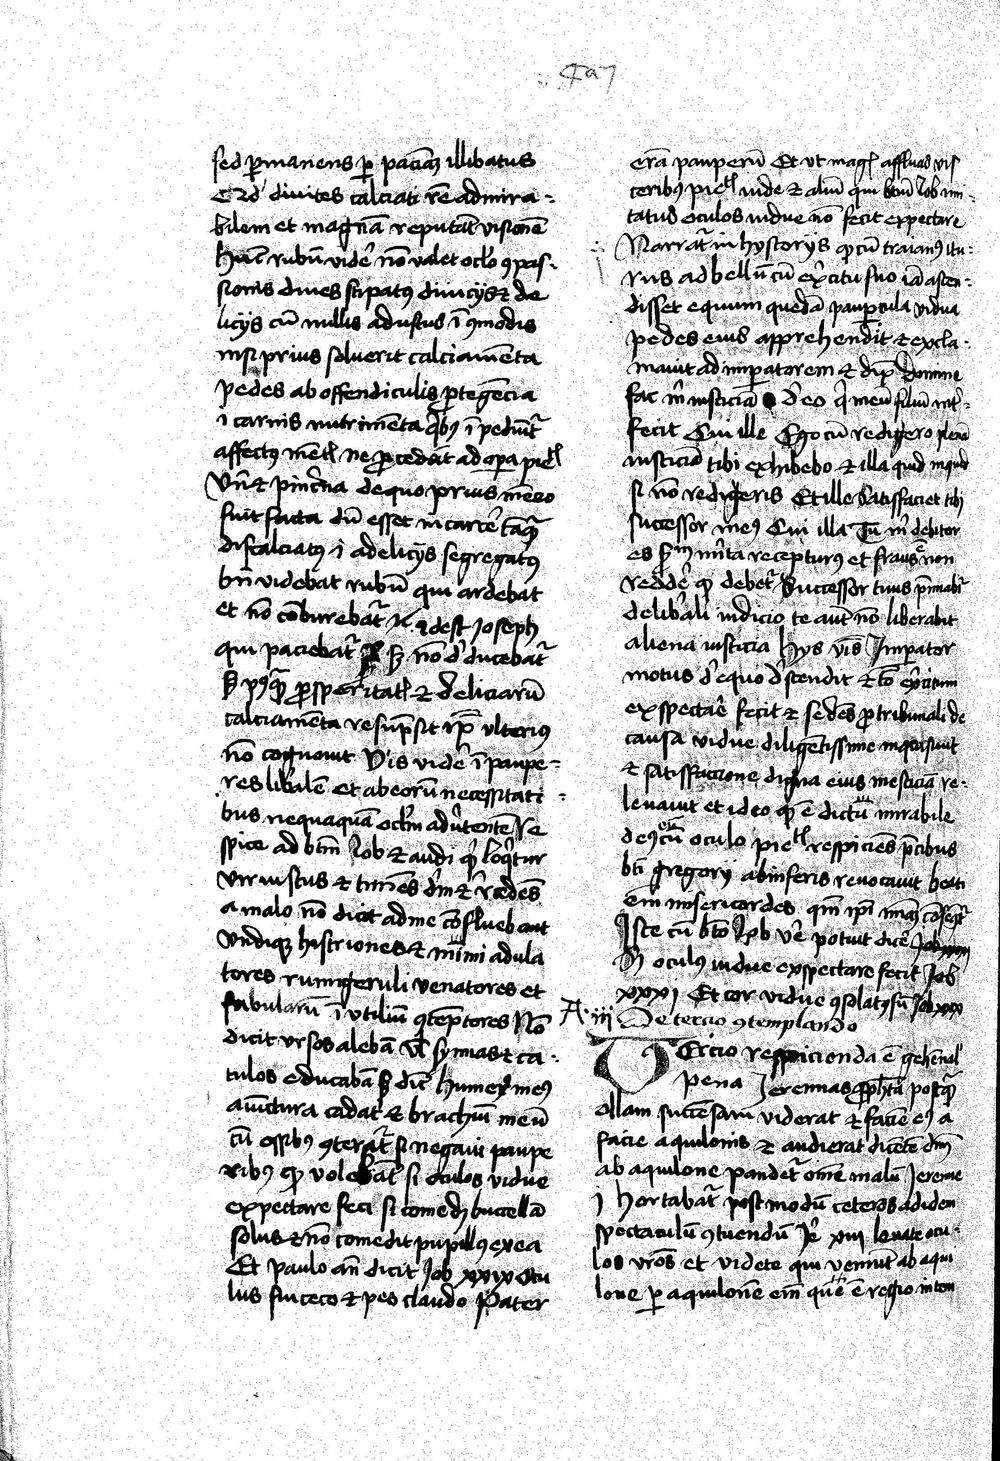 sed permanens per pacienciam illibatus
divites calciati rem admira-
bilem et magnam reputant visionem
Hunc rubum videre non valet oculo compas-
sionis dives stipatus diviciis et de
liciis cum nullis adustus incommodis
nisi prius solverit calciamenta
pedes ab offendiculis protegencia
i carnis nutrimenta quibus impediuntur
affectus mentis ne procedant ad opera pietatis
Unde et pincerna de quo prius mencio
fuit facta dum esset in carcere tamquam
discalciatus i a deliciis segregatus
bene videbat rubum qui ardebat
et non comburebatur id est Joseph
qui paciebatur sed non deducebatur
sed postquam prosperitatis et deliciarum
calciamenta resumpsit ipsum ulterius
non cognovit Vis videre in paupe-
res liberalem et ab eorum necessitati-
bus nequaquam oculum advertentem Re
spice ad beatum Job et audi quid loquitur
vir iustus et timens deum et recedens
a malo non dicit ad me confluebant
undique histriones et mimi adula
tores rumigeruli venatores et
fabularum inutilium contemptores Non
dicit ursos alebam vel symias et ca-
tulos educabam sed dicit humerus meus
a iunctura cadat et brachium meum
cum ossibus conteratur si negavi paupe
ribus quod volebant si oculos vidue
expectare feci si comedi buccellam
solus et non comedit pupillus ex ea
Et paulo ante dicit Job xxix Ocu
lus fui ceco et pes claudo Pater
eram pauperum Et ut magis affluas vis
ceribus pietatis vide et alium qui beatum Job imi-
tatus oculos vidue non fecit expectare
Narratur in hystoriis quod cum traianus itu-
rus ad bellum cum exercitu suo iam ascen-
disset equum quedam paupercula vidua
pedes eius apprehendit et excla-
mavit ad imperatorem et dixit Domine
fac mihi iusticiam de eo qui meum filium inter-
fecit Cui ille Ego cum rediero plenam
iusticiam tibi exhibebo et illa quid inquit
si non redieris Et ille Satisfaciet tibi
successor meus Cui illa Tu mihi debitor
es secundum merita recepturus et fraus est non
reddere quod debetur Successor tuus
deliberali iudicio te autem non liberabit
aliena iusticia Hys visis Imperator
motus de equo descendit et totum exercitum
exspectare fecit et sedens pro tribunali de
causa vidue diligentissime inquisivit
et satisfaccione digna eius mesticiam re-
levavit et ideo quod est dictum mirabile
deus eum oculo pietatis respiciens precibus
beati gregorii ab inferis revocavit beati
enim misericordes quoniam ipsi misericordiam consequentur
Iste cum beato Job vere potuit dicere
Si oculus vidue expectare fecit Job
xxxi Et cor vidue consolatus sum Job xxix
A iii De tercio contemplando
Tercio respicienda est gehennalis
pena Jeremias propheta postquam
ollam succensam viderat et faciem eius a
facie aquilonis et audierat dicentem deum
ab aquilone pandetur omne malum Jeremie
i Hortabatur postmodum ceteros ad idem
spectaculum contuendum Jere xiii levate ocu-
los vestros et videte qui veniunt ab aqui
lone per aquilonem enim que est regio